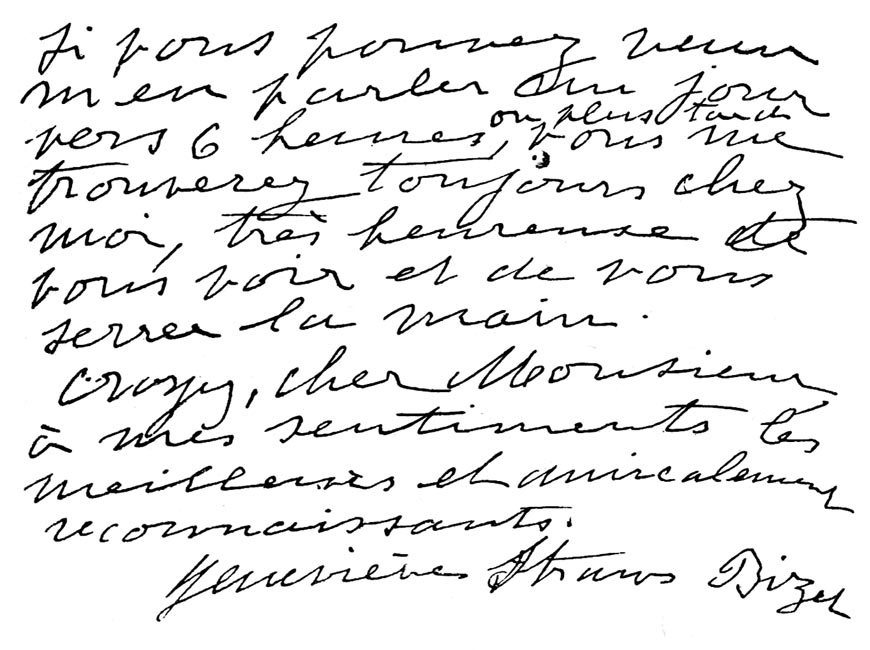 Si vous pouvez venir
m'en parler un jour
vers 6 heures, ou plus tard, vous me
trouverez toujours chez
moi, très heureuse de
vous voir et de vous
serrer la main.
Croyez, cher Monsieur
à mes sentiments les
meilleurs et amicalement
reconnaissants.
Geneviève Straus Bizet